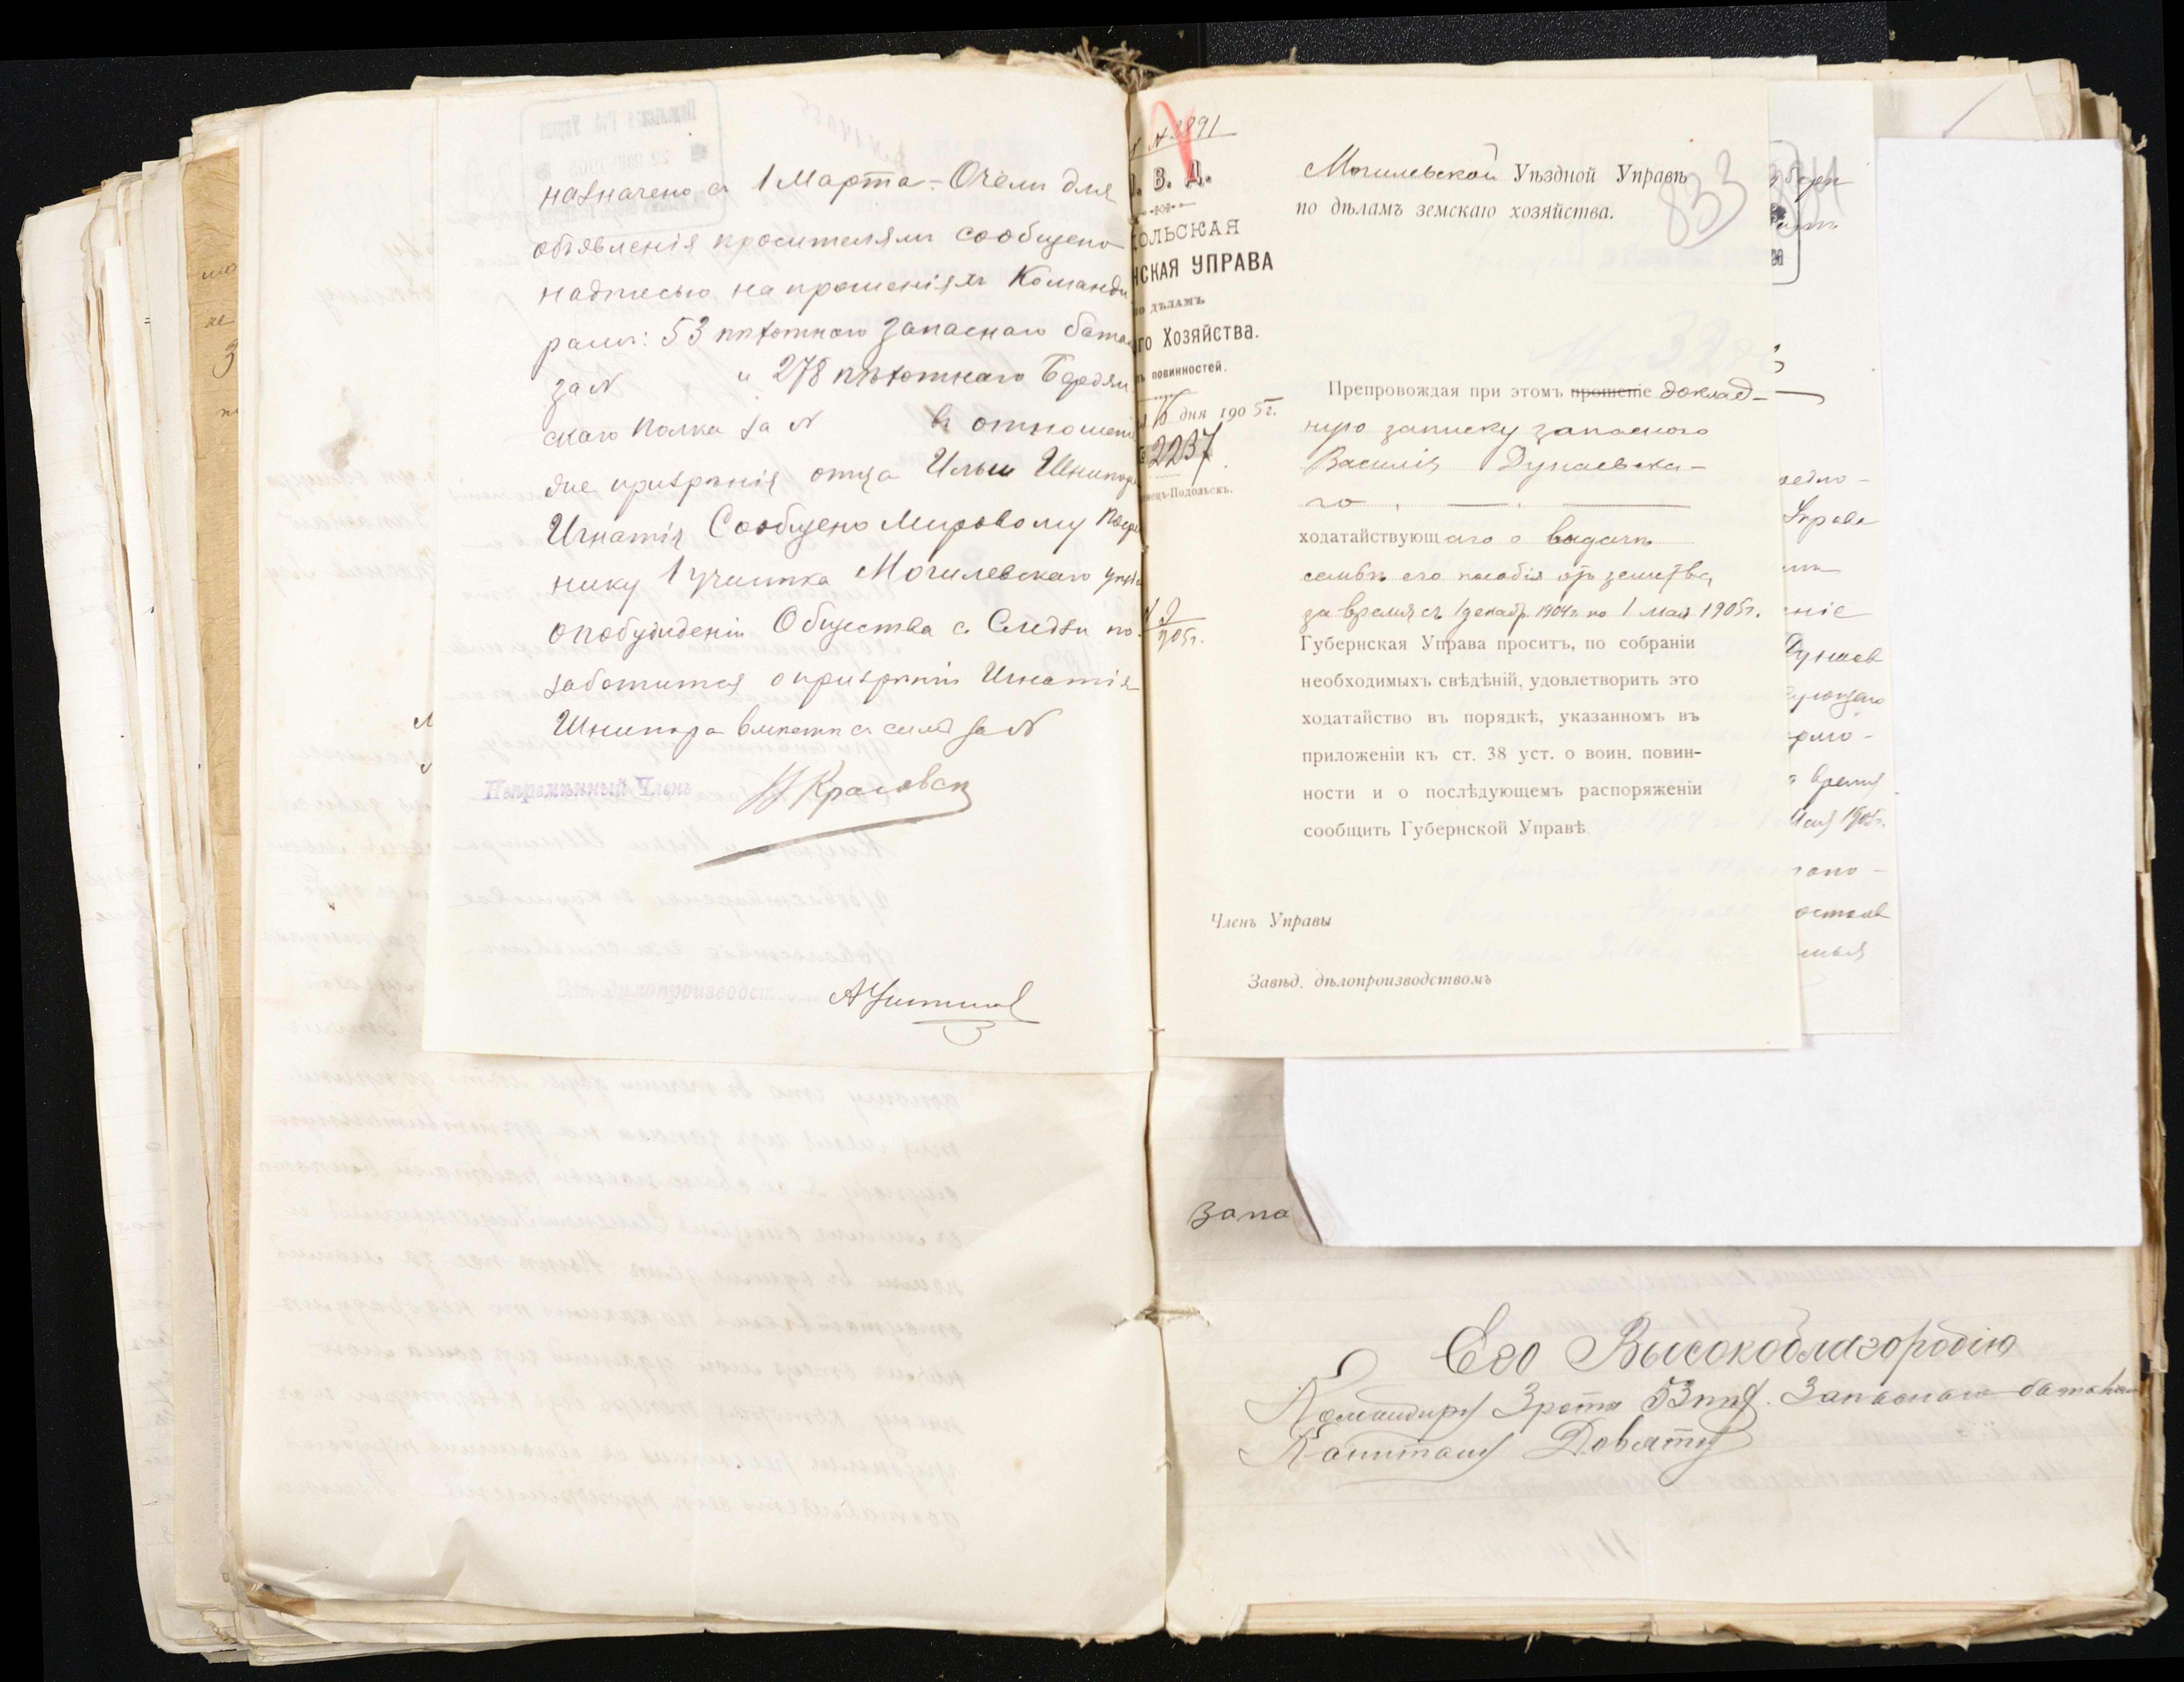 назначено съ 1 Марта. О чемъ для
объявленія просителямъ сообщено
надписью на прошеніяхъ Команди
рамъ: 53 пѣхотнаго запаснаго бата
за № и 278 пѣхотнаго
скаго полка за № въ отношеніи
же призрѣнія отца Ильи
Игнатія Сообщено Мировому Поср
нику 1 участка Могилевскаго уѣз
о побужденіи Общества с. по
заботится о призрѣніи Игнатія
Шнипора вмѣстѣ съ симъ за №
Непремѣнный Членъ
А
№ 2891
В. Д.
ОЛЬСКАЯ
НСКАЯ УПРАВА
по дѣламъ
го Хозяйства.
повинностей.
дня 1905 г.
2237
нецъ-Подольскъ.
1905г.
Могилевской Уѣздной Управѣ
по дѣламъ земскаго хозяйства.
833
Препровождая при этомъ прошеніе доклад-
ную записку запасного
Василія Дунаевска-
го
ходатайствующаго о выдачѣ
семьѣ его пособія отъ земства,
за время съ 1 декабр. 1904 г. по 1 мая 1905 г.
Губернская Управа проситъ, по собраніи
необходимыхъ свѣдѣній, удовлетворить это
ходатайство въ порядкѣ, указанномъ въ
приложеніи къ ст. 38 уст. о воин. повин-
ности и о послѣдующемъ распоряженіи
сообщить Губернской Управѣ.
Членъ Управы
Завѣд. дѣлопроизводствомъ
834
Управа
ніе
Дунаев
время
1905г.
запа
Его Высокоблагородію
Командиру 3 роты 53 пѣх. Запаснаго баталіона
Капитану Довяту